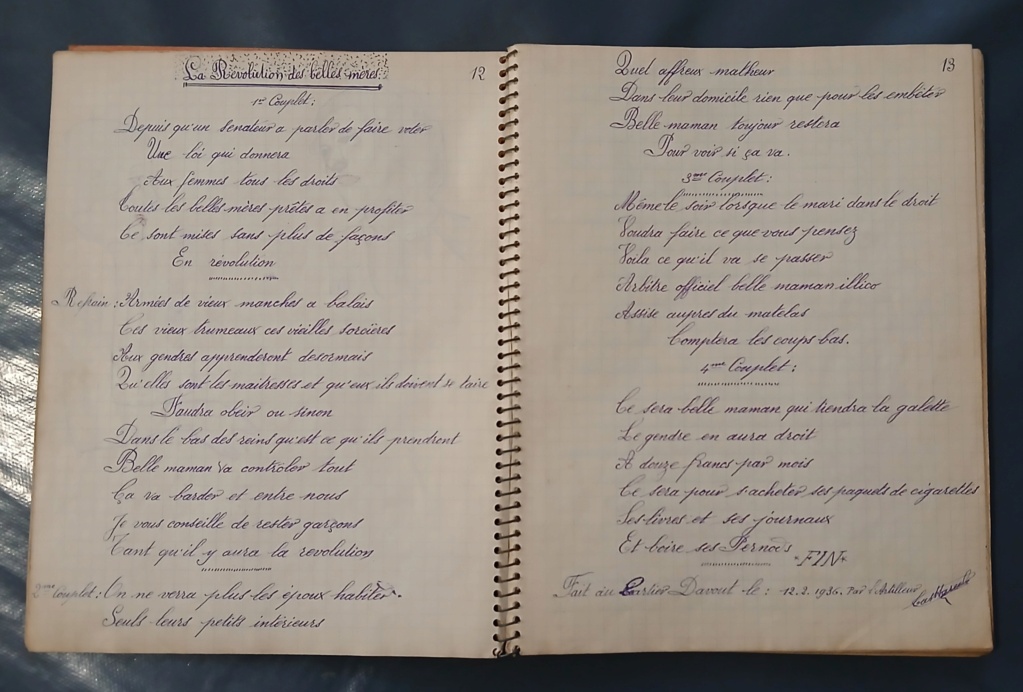 La Révolution des belles mères.
12
1er Couplet :
Depuis qu'un senateur a parler de faire voter
Une loi qui donnera
Aux femmes tous les droits
Toutes les belles-mères prêtes a en profiter
Ce sont mises sans plus de façons
En révolution
Refrain : Armées de vieux manches a balais
Ces vieux trumeaux ces vieilles sorcières
Aux gendres apprenderont desormais
Qu'elles sont les maitresses et qu'eux ils doivent se taire
Faudra obeir ou sinon
Dans le bas des reins qu'est ce qu'ils prendront
Belle maman va controler tout
Ça va barder et entre nous
Je vous conseille de rester garçons
Tant qu'il y aura la revolution
2eme Couplet : On ne verra plus les époux habiter.
Seuls leurs petits intérieurs
13
Quel affreux malheur
Dans leur domicile rien que pour les embêter
Belle-maman toujour restera
Pour voir si ça va.
3eme Couplet :
Même le soir lorsque le mari dans le droit
Voudra faire ce que vous pensez
Voila ce qu'il va se passer
Arbitre officiel belle maman illico
Assise aupres du matelas
Comptera les coups bas.
4eme Couplet :
Ce sera belle maman qui tiendra la galette
Le gendre en aura droit
A douze francs par mois
Ce sera pour s'acheter ses paquets de cigarettes
Ses livres et ses journaux
Et boire ses Pernots
"FIN"
Fait au Cartier Davout le : 12.2.1936. Par l'Artilleur